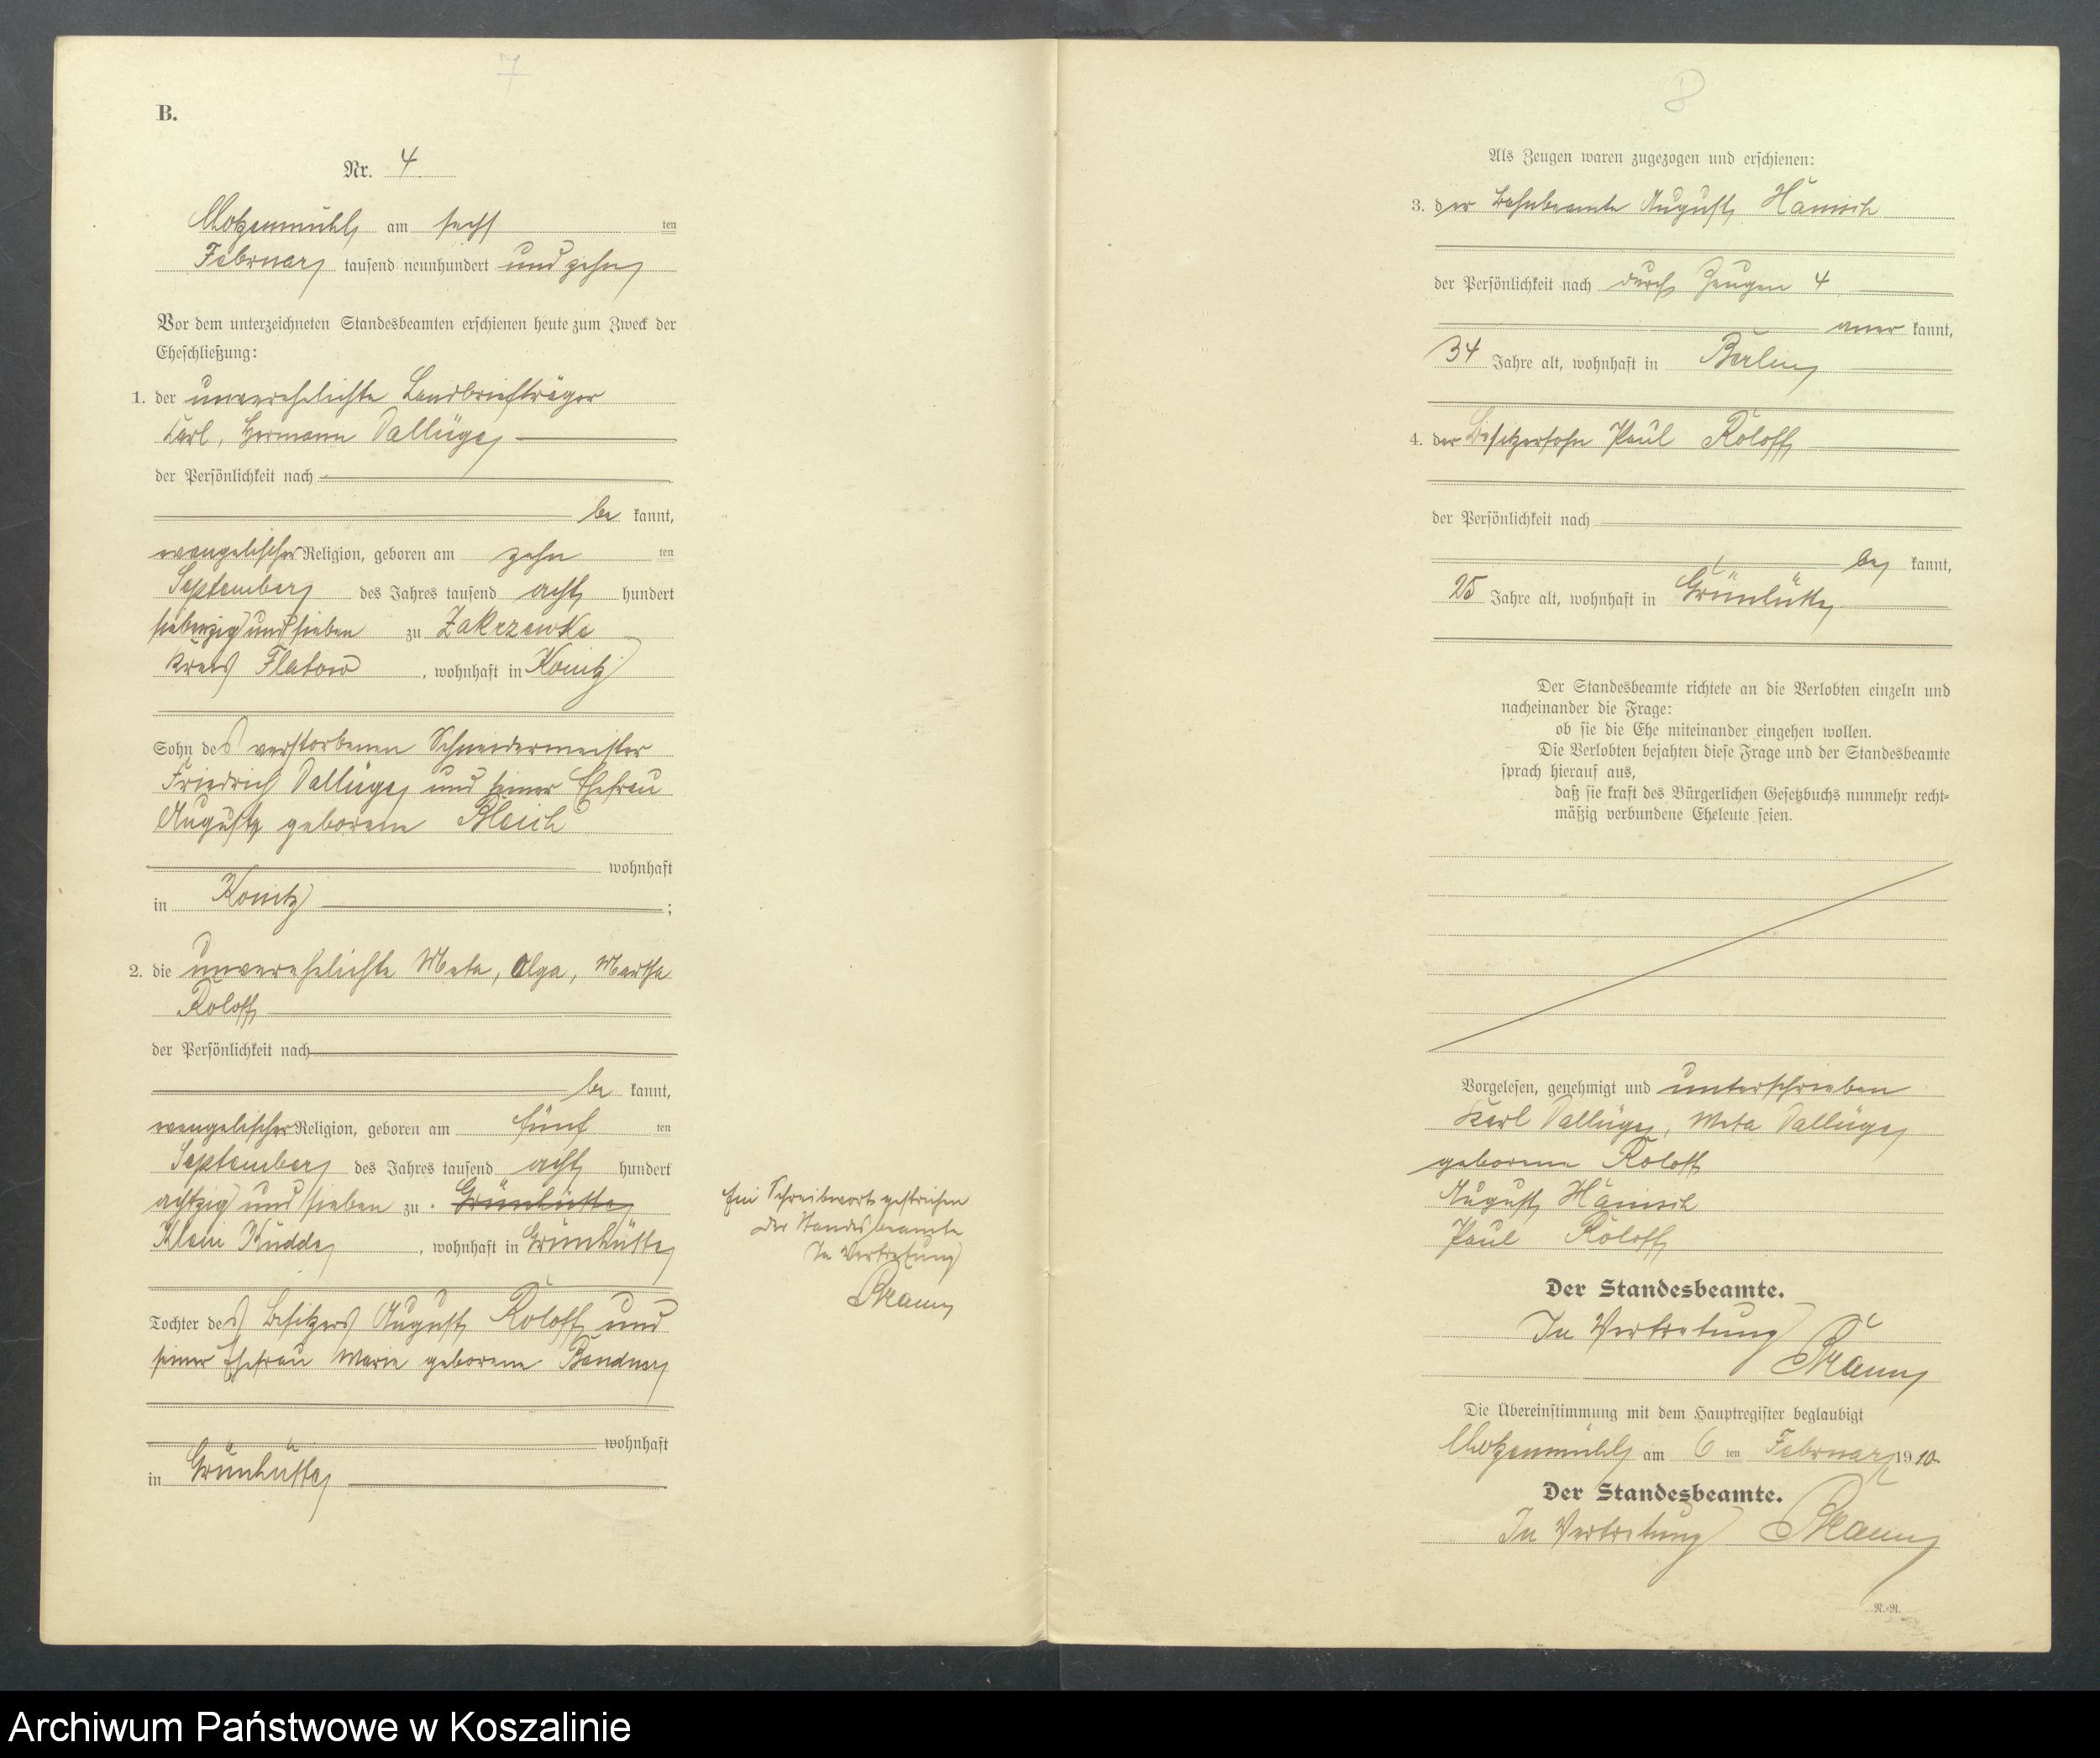 7
B.
Nr. 4
Klotzenmühl am sechs ten
Februar tausend neunhundert und zehn
Vor dem unterzeichneten Standesbeamten erschienen heute zum Zweck der
Eheschließung:
1. der unverehelichte Landbriefträger
Karl, Hermann Dallüge
der Persönlichkeit nach
be kannt,
evangelischer Religion, geboren am zehn ten
September des Jahres tausend acht hundert
siebenzig und sieben zu Zakrzewke
Kreis Flatow, wohnhaft in Konitz
Sohn des verstorbenen Schneidermeister
Friedrich Dallüge und seiner Ehefrau
Auguste geborene Bleich
wohnhaft
in Konitz ;
2. die unverehelichte Meta, Olga, Martha
Roloff
der Persönlichkeit nach
be kannt,
evangelischer Religion, geboren am fünf ten
September des Jahres tausend acht hundert
achtzig und sieben zu Grünhütte
Klein Küdde, wohnhaft in Grünhütte
Ein Schreibwort gestrichen
Der Standesbeamte
In Vertretung
Tochter des Besitzers August Roloff und
seiner Ehefrau Marie geborene
wohnhaft
in Grünhütte
8
Als Zeugen waren zugezogen und erschienen:
3. der Bahnbeamte August Hämsch
der Persönlichkeit nach durch Zeugen 4
aner kannt,
34 Jahre alt, wohnhaft in Berlin
4. der Besitzersohn Paul Roloff
der Persönlichkeit nach
be kannt,
25 Jahre alt, wohnhaft in Grünhütte
Der Standesbeamte richtete an die Verlobten einzeln und
nacheinander die Frage:
ob sie die Ehe miteinander eingehen wollen.
Die Verlobten bejahten diese Frage und der Standesbeamte
sprach hierauf aus,
daß sie kraft des Bürgerlichen Gesetzbuchs nunmehr recht-
mäßig verbundene Eheleute seien.
Vorgelesen, genehmigt und unterschrieben
Karl Dallüge, Meta Dallüge
geborene Roloff
August Hämsch
Paul Roloff
Der Standesbeamte.
In Vertretung
Die Übereinstimmung mit dem Hauptregister beglaubigt
Klotzenmühl am 6 ten Februar 1910.
Der Standesbeamte.
In Vertretung
R.-R.
Archiwum Państwowe w Koszalinie